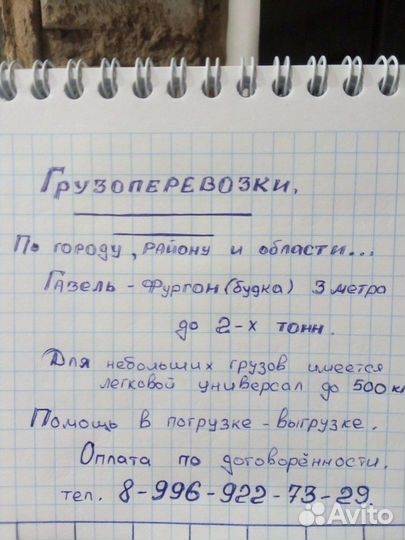 Грузоперевозки.
По городу, району и области...
Газель - Фургон (будка) 3 метра
до 2-х тонн.
Для небольших грузов имеется
легковой универсал до 500 кг
Помощь в погрузке - выгрузке.
Оплата по договорённости.
тел. 8-996-922-73-29.
Avito